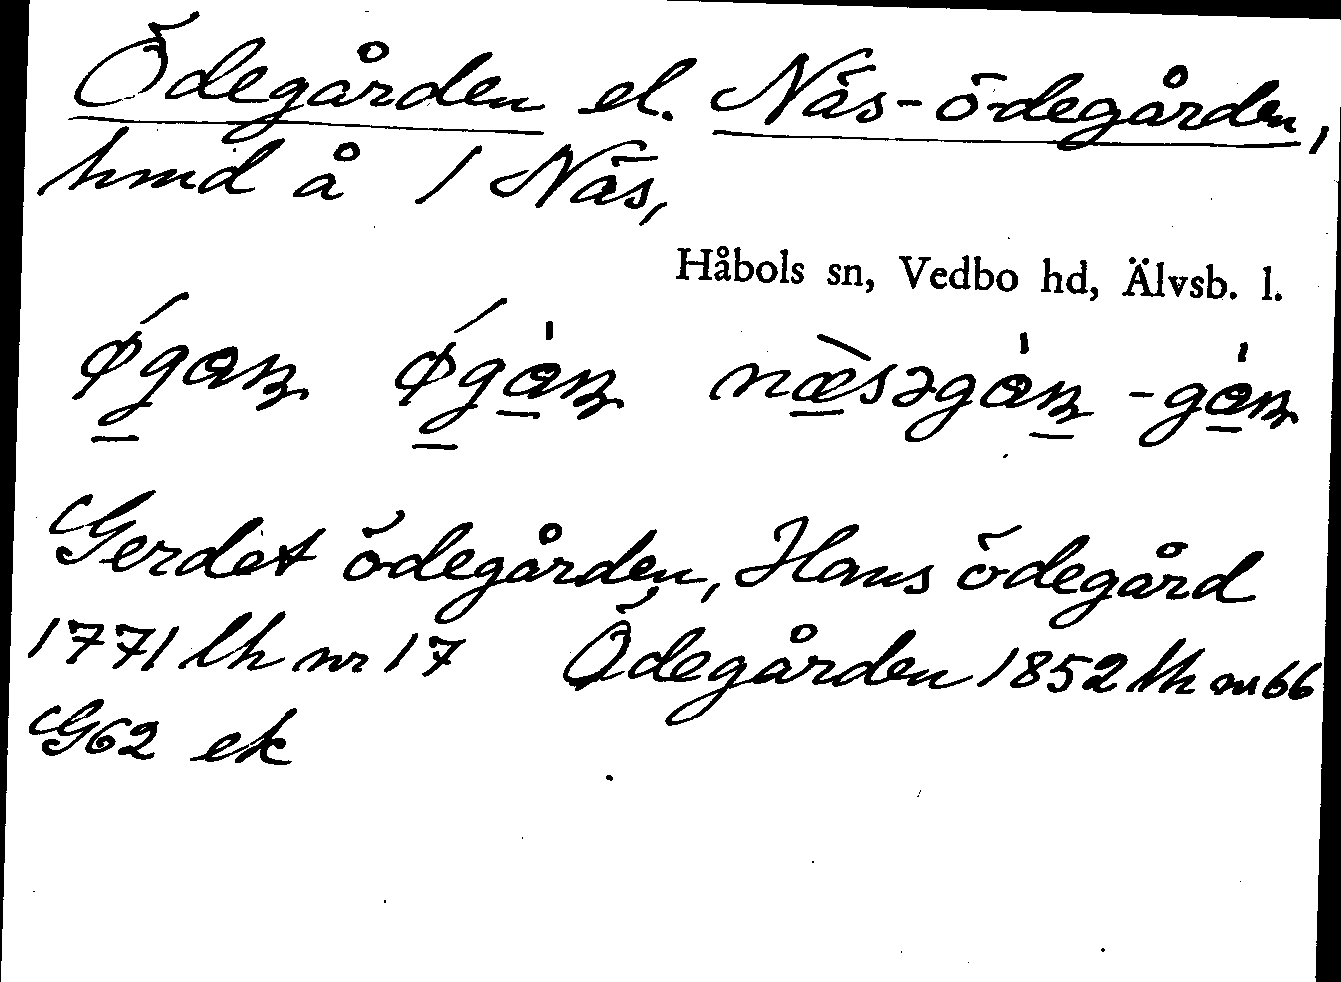 Ödegården el. Näs-ödegården,
hmd å 1 Näs,
Håbols sn, Vedbo hd, Älvsb. l.
Gerdet ödegården, Hans ödegård
1771 lh nr 17 Ödegården 1852 lh nr 66
G62 ek